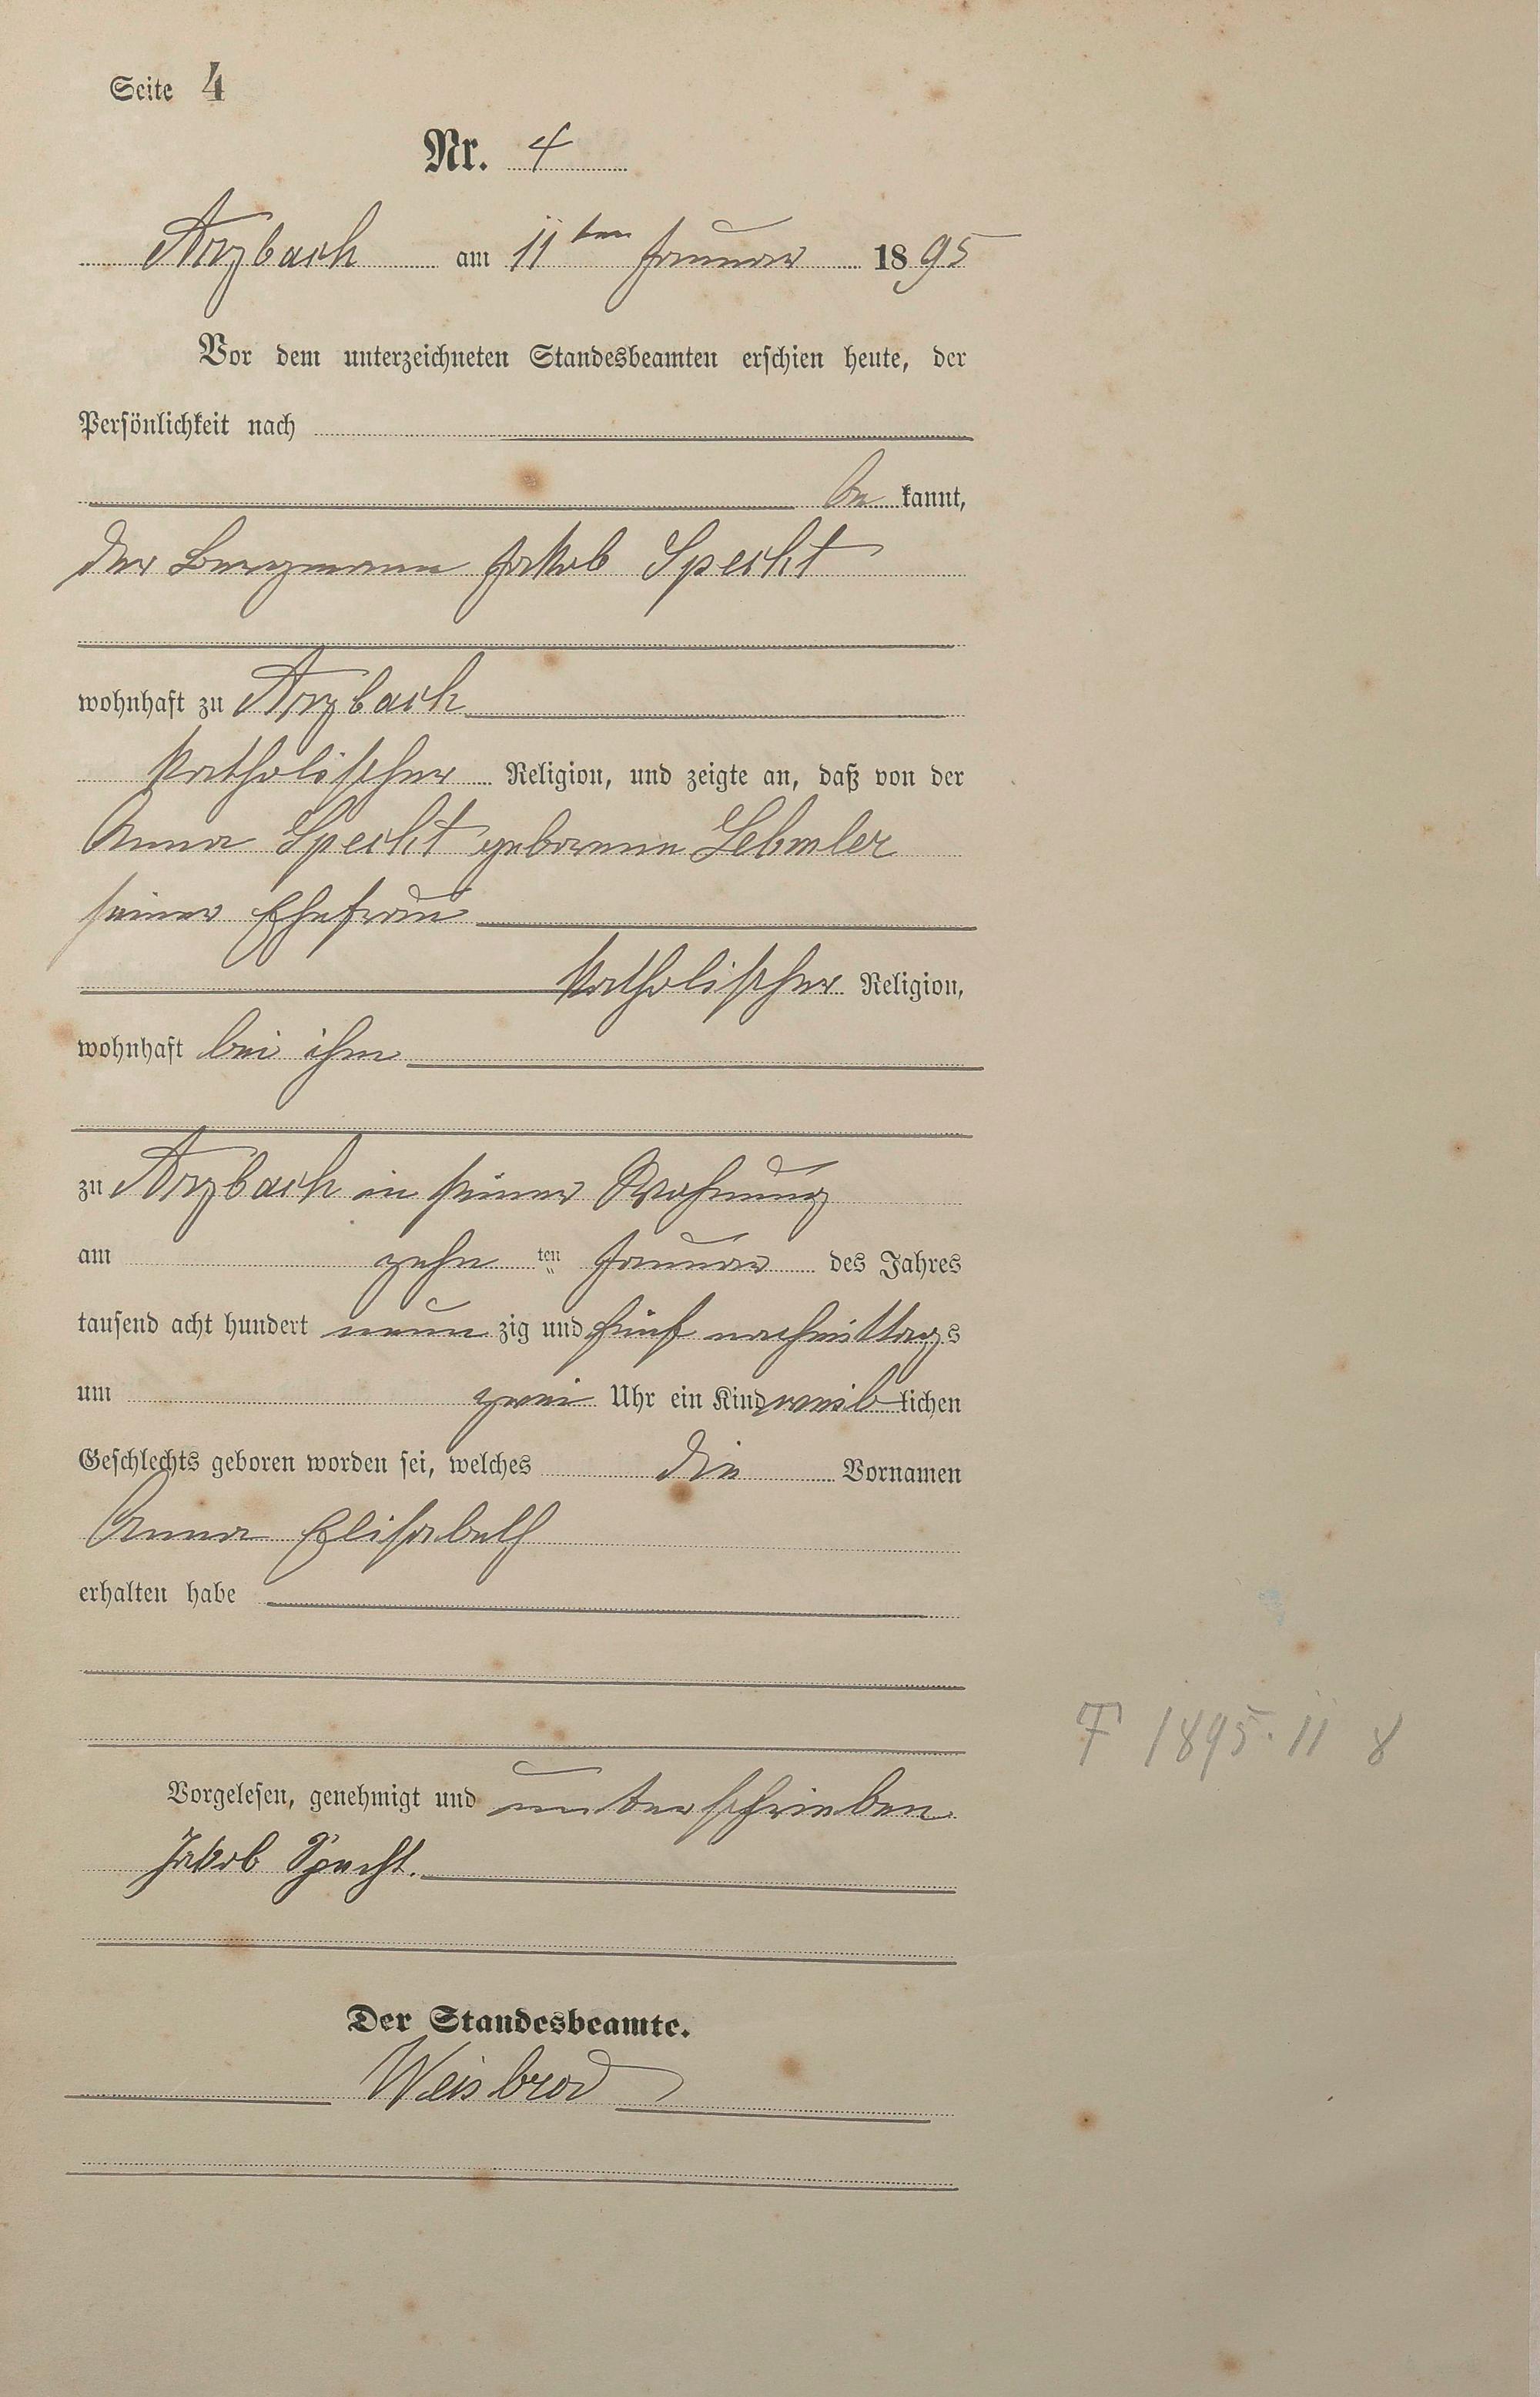 Seite 4
Nr. 4
Arzbach am 11ten Januar 1895
Vor dem unterzeichneten Standesbeamten erschien heute, der
Persönlichkeit nach
be kannt,
der Bergmann Jakob Specht
wohnhaft zu Arzbach
katholischer Religion, und zeigte an, daß von der
Anna Specht geborene Lebmler
seiner Ehefrau
katholischer Religion,
wohnhaft bei ihm
zu Arzbach in seiner Wohnung
am zehn ten Januar des Jahres
tausend acht hundert neun zig und fünf nachmittags
um zwei Uhr ein Kind weib lichen
Geschlechts geboren worden sei, welches die Vornamen
Anna Elisabeth
erhalten habe
F 1895. 11 8
Vorgelesen, genehmigt und unterschrieben
Jakob Specht.
Der Standesbeamte.
Weisbrod